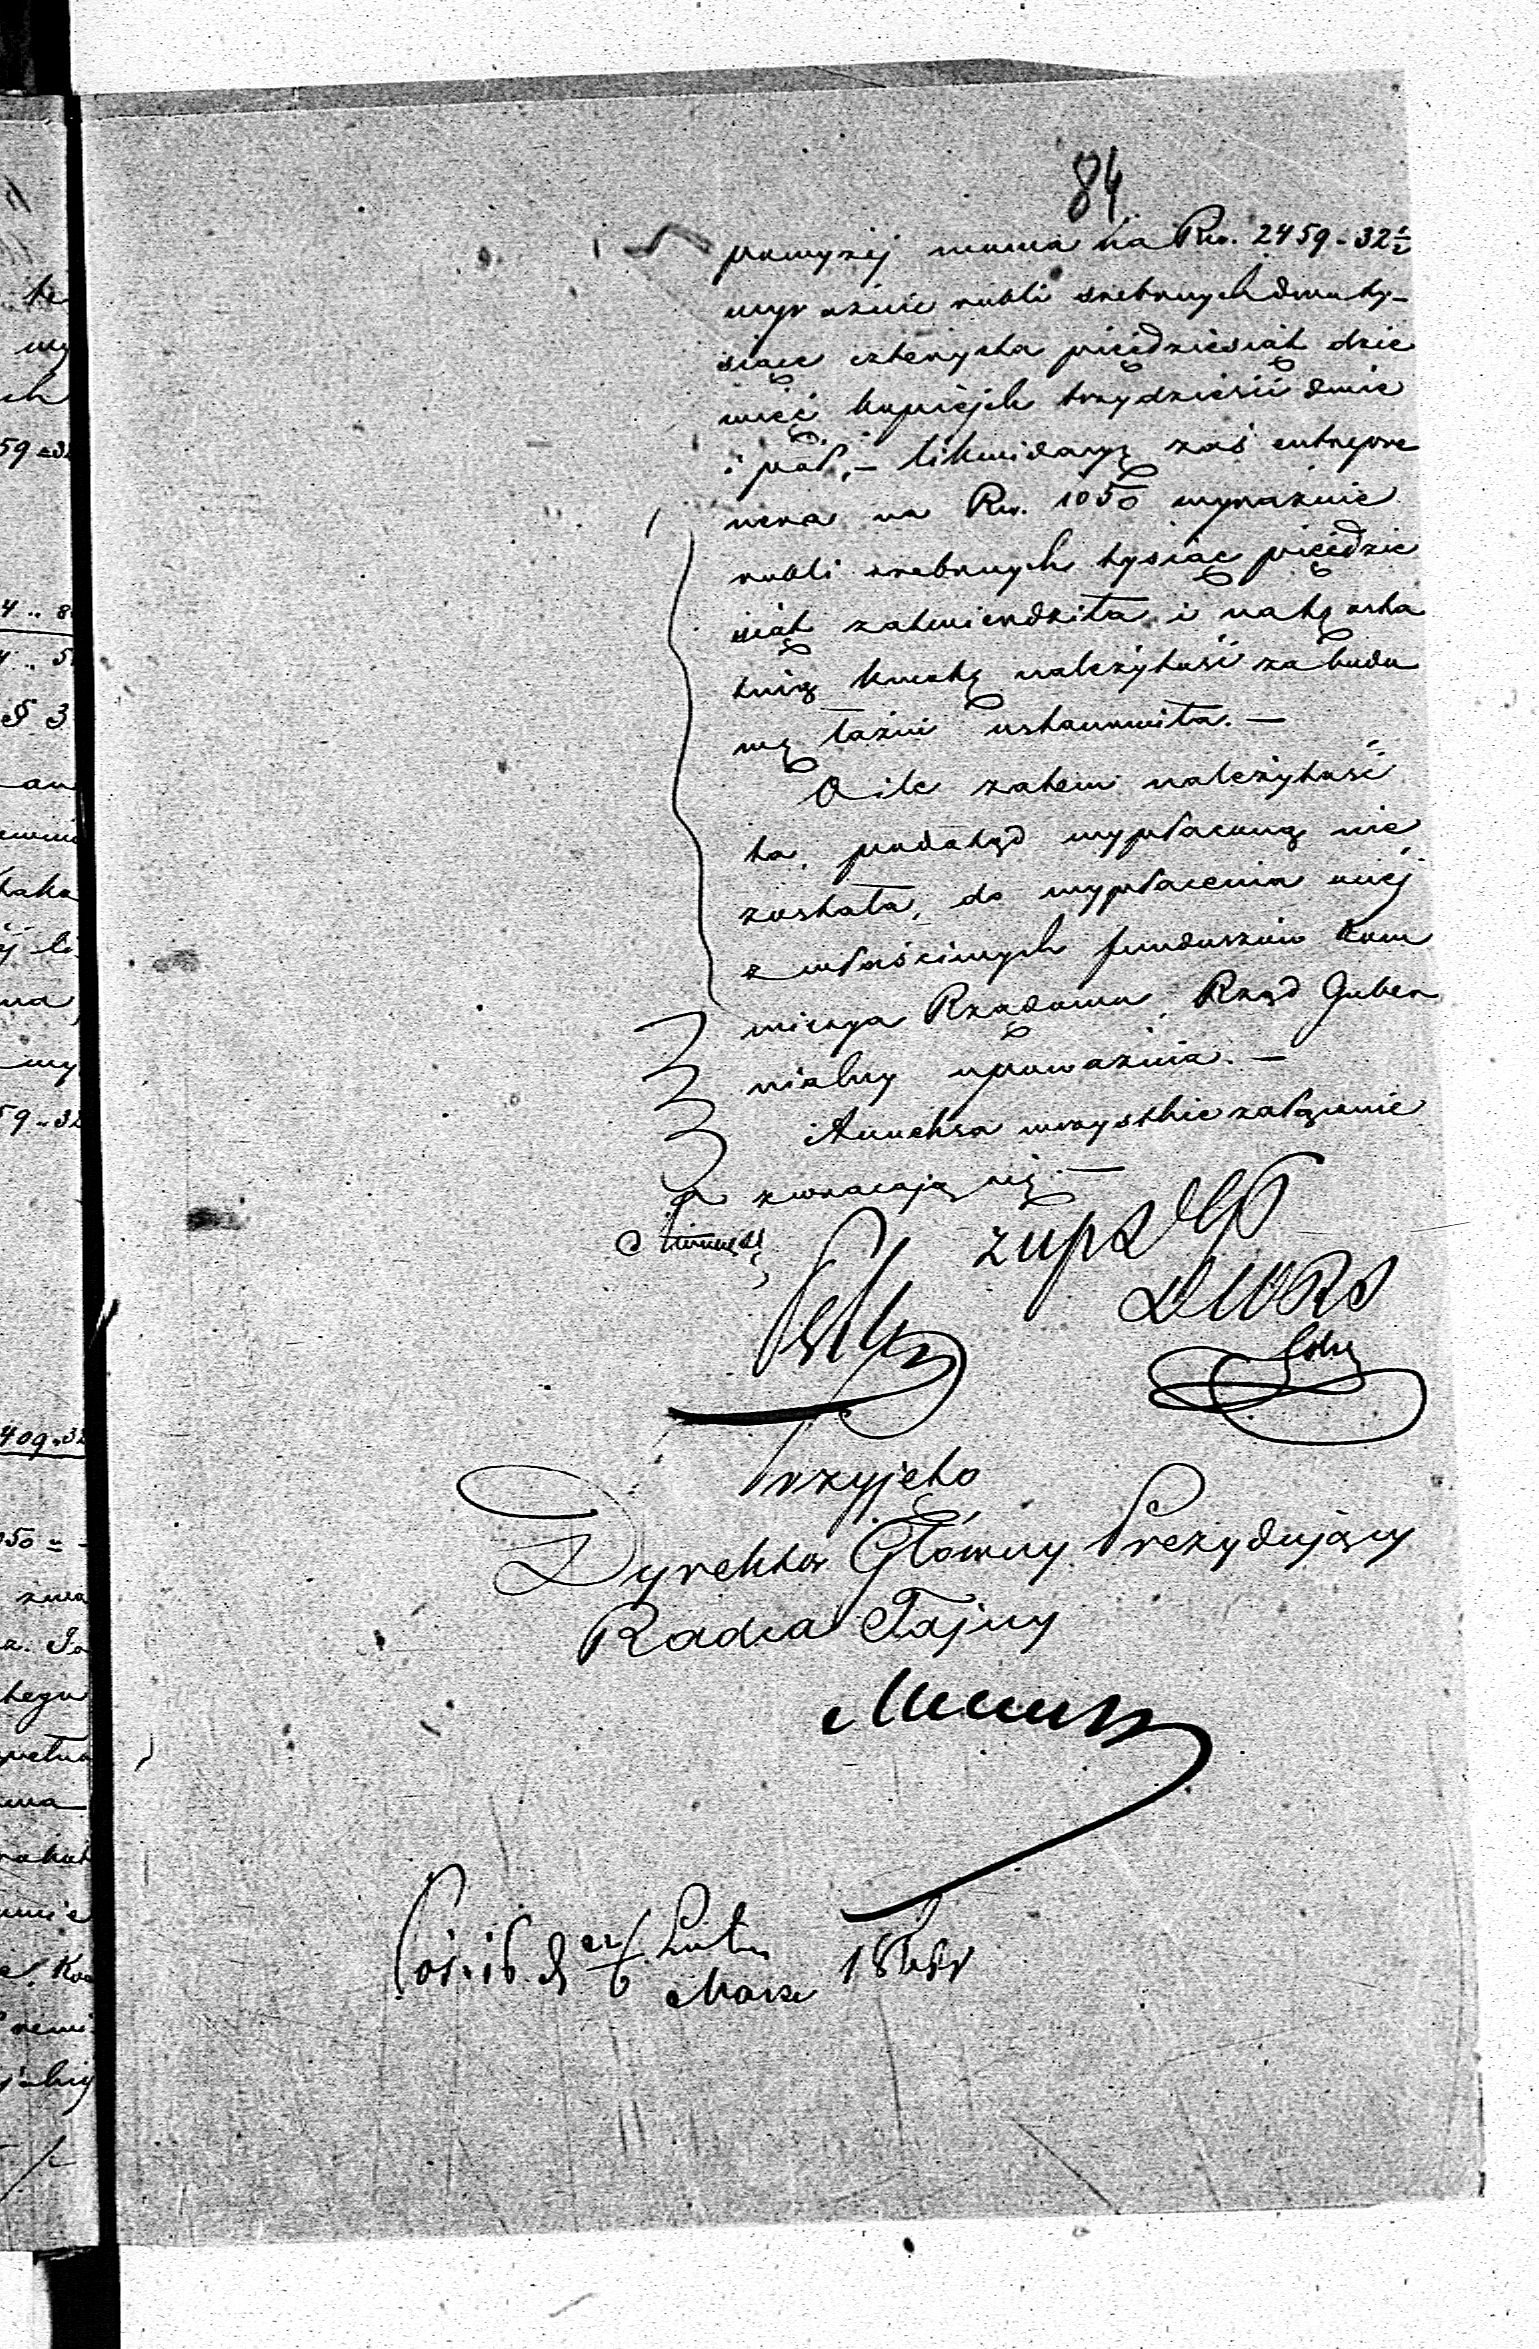 84.
powyżej mowa na Rsr. 2459-32½
wyraźnie rubli srebrnych dwa ty-
siące czterysta pięćdziesiąt dzie
więć kopiejek trzydzieści dwie
i pół, – likwidacyą zaś entrepre
nera na Rsr. 1050 wyraźnie
rubli srebrnych tysiąc pięćdzie
siąt zatwierdziła i na tę osta
tnią kwotę należytość za budo
wę łaźni ustanowiła. –
O ile zatem należytość
ta, podotąd wypłaconą nie
została, do wypłacenia onéj
z właściwych funduszów Kom
missya Rządowa, Rząd Guber
nialny upoważnia. –
Annexa wszystkie załącznie
zwracają się. –
Przyjęto
Dyrektor Główny Prezydujący
Radca Tajny
Lutego
Marca